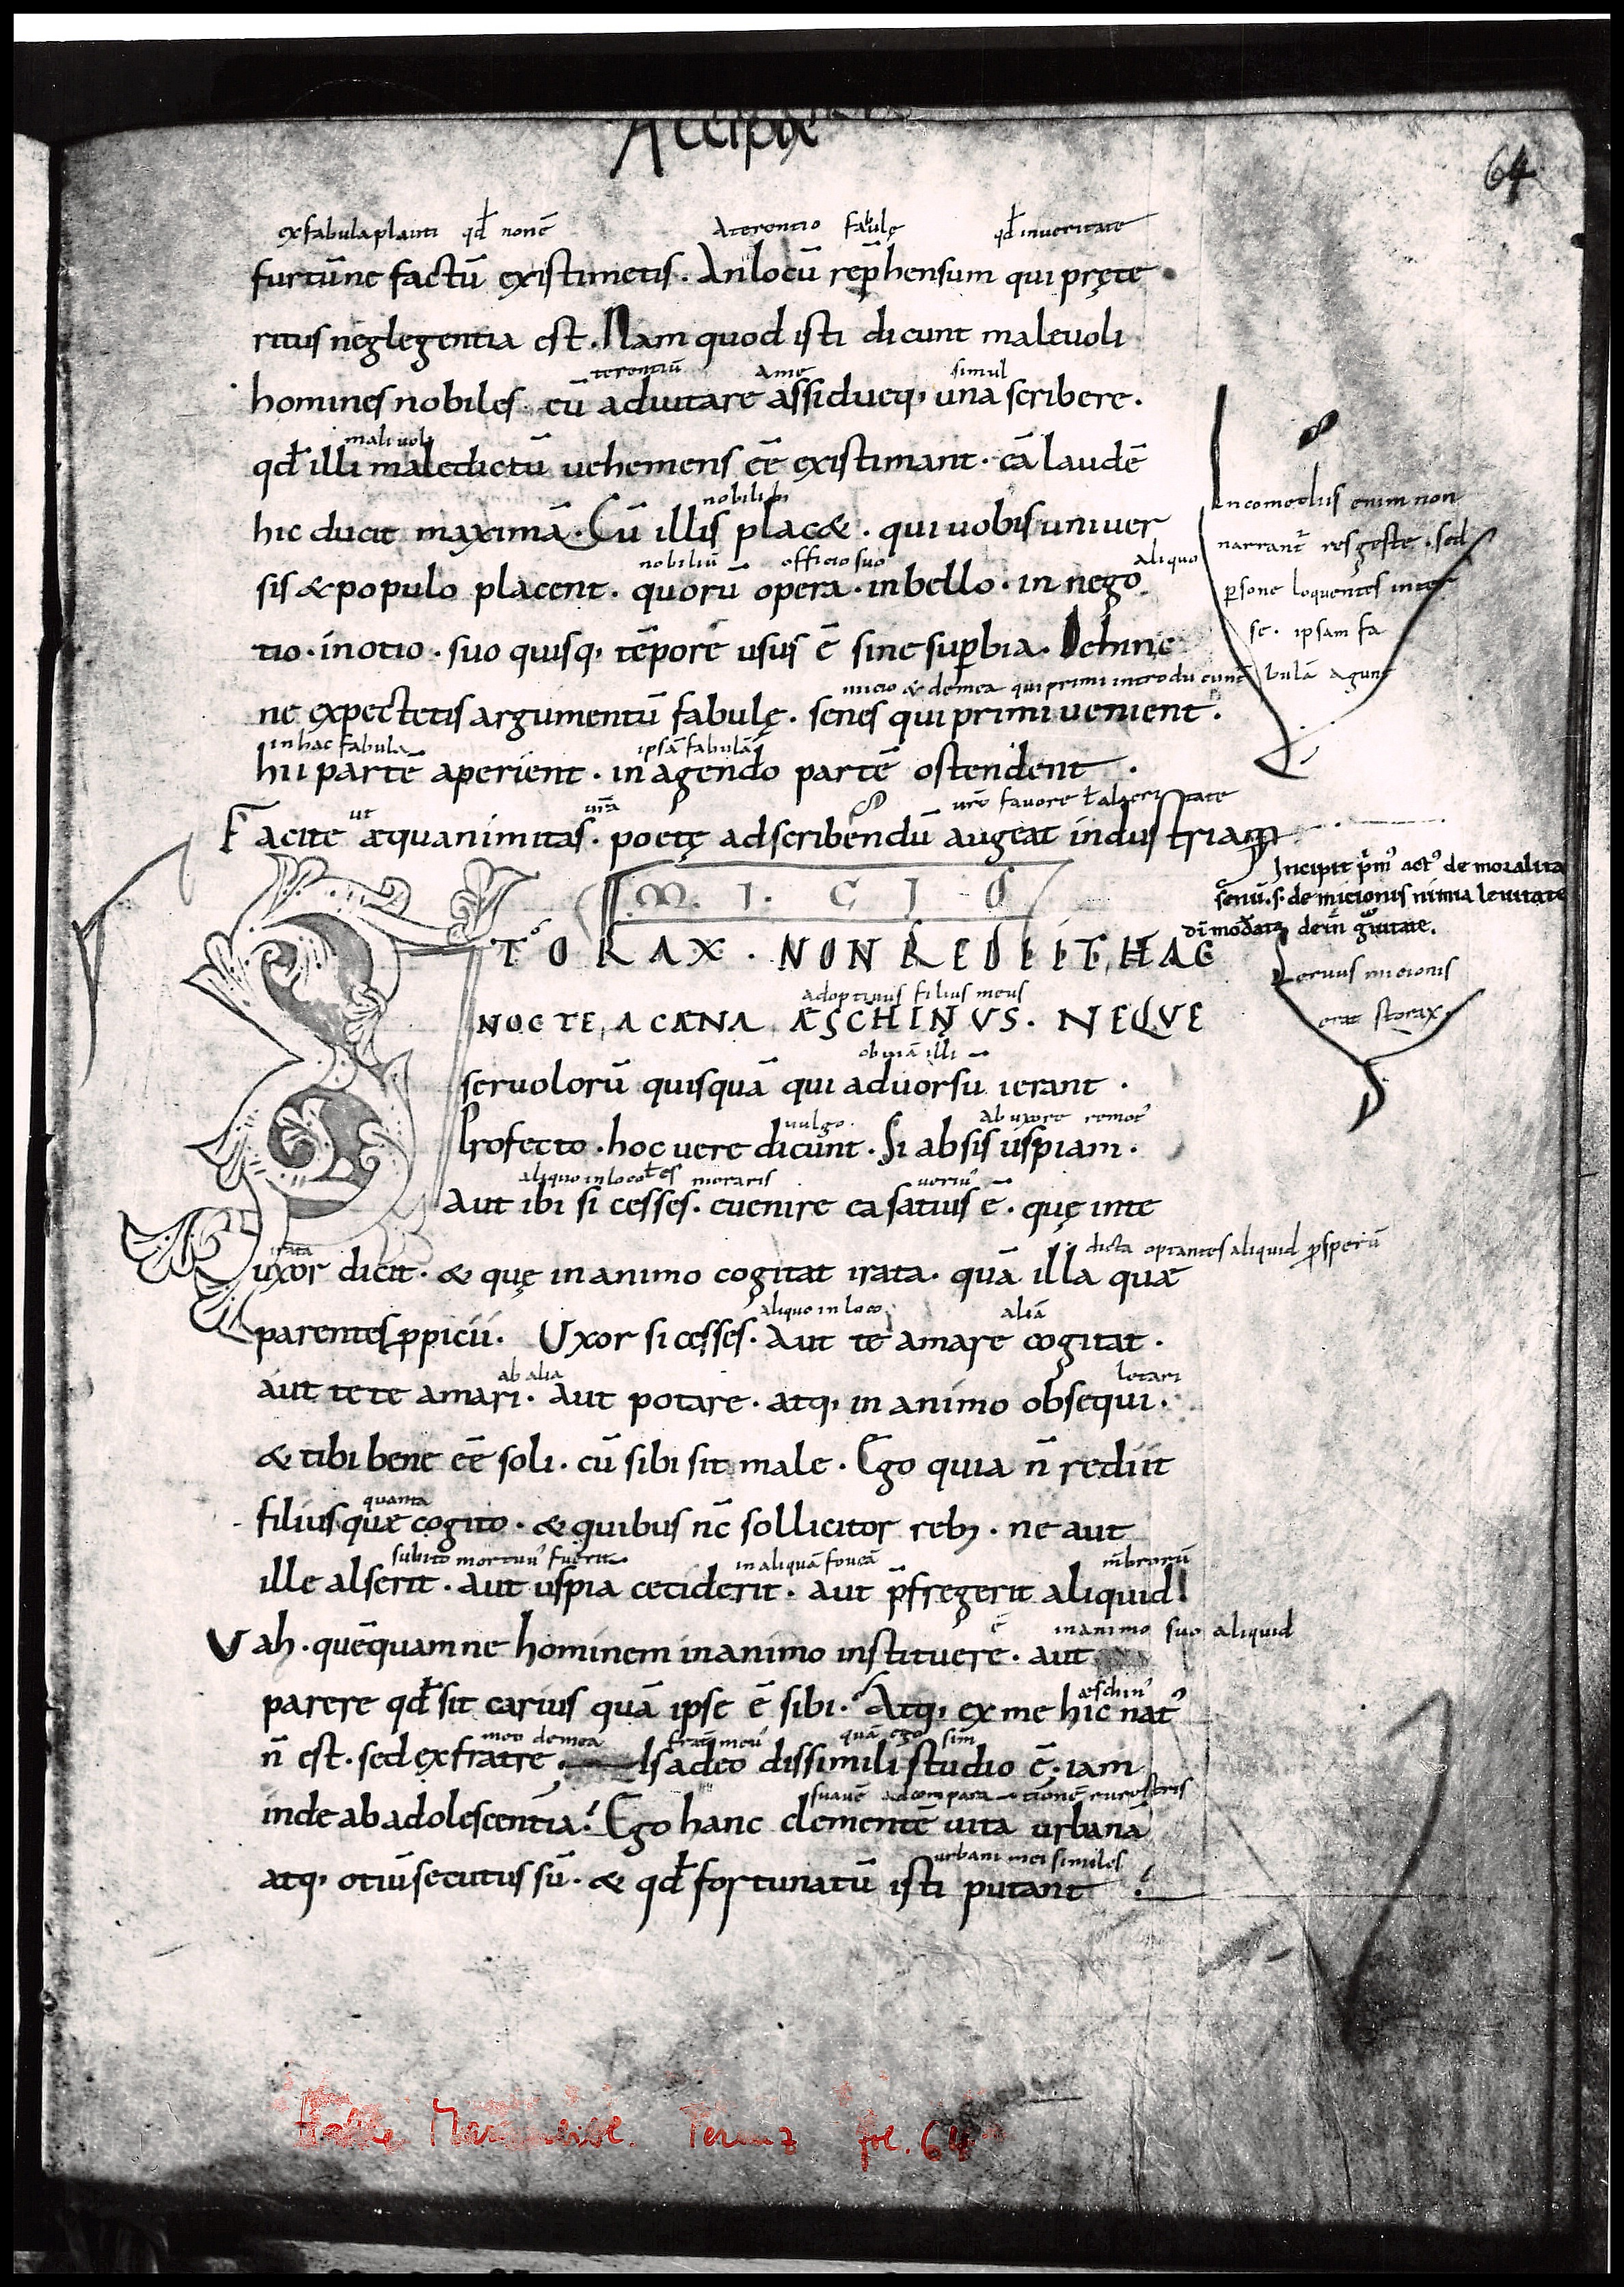 Accipite
64
ex fabula plauti qđ nonē Aterentio fabulę qđ inueritate
furtūne factū existimetis. An locū rep̄hensum qui pręte
ritus neglegentia est. Nam quod isti dicunt maleuoli
terentiū simul
homines nobiles. eū adiutare assidueq; una scribere.
maliuoli
qđ illi maledictū uehemens eē existimant. eā laudē
nobilib;
hic ducit maximā. Cū illis plac&. qui uobis uniuer
nobiliū officio suo aliquo
sis & populo placent. quorū opera. in bello. in nego
tio. in otio. suo quisq; tēpore usus ē sine sup̱bia. Dehinc
micio & demea qui primi introducunt̄
ne expectetis argumentū fabulę. senes qui primi uenient.
in hac fabula ipsā fabulā
hii partē aperient. in agendo partē ostendent.
ut ur̄a ur̄o fauore ł alacritate
Facite æquanimitas. poetę ad scribendū augeat industriam
Incomediis enim non
narrant̄ res geste. sed
p̱sone loquentes inter
se. ipsam fa
bulā agunt
Incipit p̄m' act' de moralita
senū. s. de micionis nimia leuitate
M. I. C I O
STORAX. NON REDIIT HAC
Seruus micionis
erat storax.
adoptiuus filius meus
NOCTE A CÆNA ÆSCHINVS. NEQVE
obuiā illi
seruolorū quisquā qui aduorsū ierant.
uulgo. Ab uxore remot'
Profecto. hoc uere dicunt. Si absis uspiam.
aliquo in loco ł es moraris
Aut ibi si cesses. euenire ea satius ē. quę inte
irata dicta optantes aliquid p̱sperū
uxor dicit. & quę in animo cogitat irata. quā illa quæ
aliquo in loco aliā
parentes p̱picii. Uxor si cesses. Aut te amare cogitat.
ab alia letari
aut te te amari. Aut potare. atq; in animo obsequi.
& tibi bene eē soli. cū sibi sit male. Ego quia n̄ rediit
quanta
filius quæ cogito. & quibus nc̄ sollicitor reb;. ne aut
subito mortuu' fuerit. in aliquā foueā mēbrorū
ille alserit. aut uspiā ceciderit. aut p̄fregerit aliquid.
ē in animo suo aliquid
Vah. quēquamne hominem in animo instituere. aut
æschin'
parere qđ sit carius quā ipse ē sibi. Atq; ex me hic nat'
meo demea frat̄ meu' quā ego sim
n̄ est. sed ex fratre. Is adeo dissimili studio ē. iam
suauē ad comparationē rurestris
inde ab adolescentia. Ego hanc clementē uitā urbanā
urbani mei similes
atq; otiū secutus sū. & qđ fortunatū isti putant
Terenz fol. 64